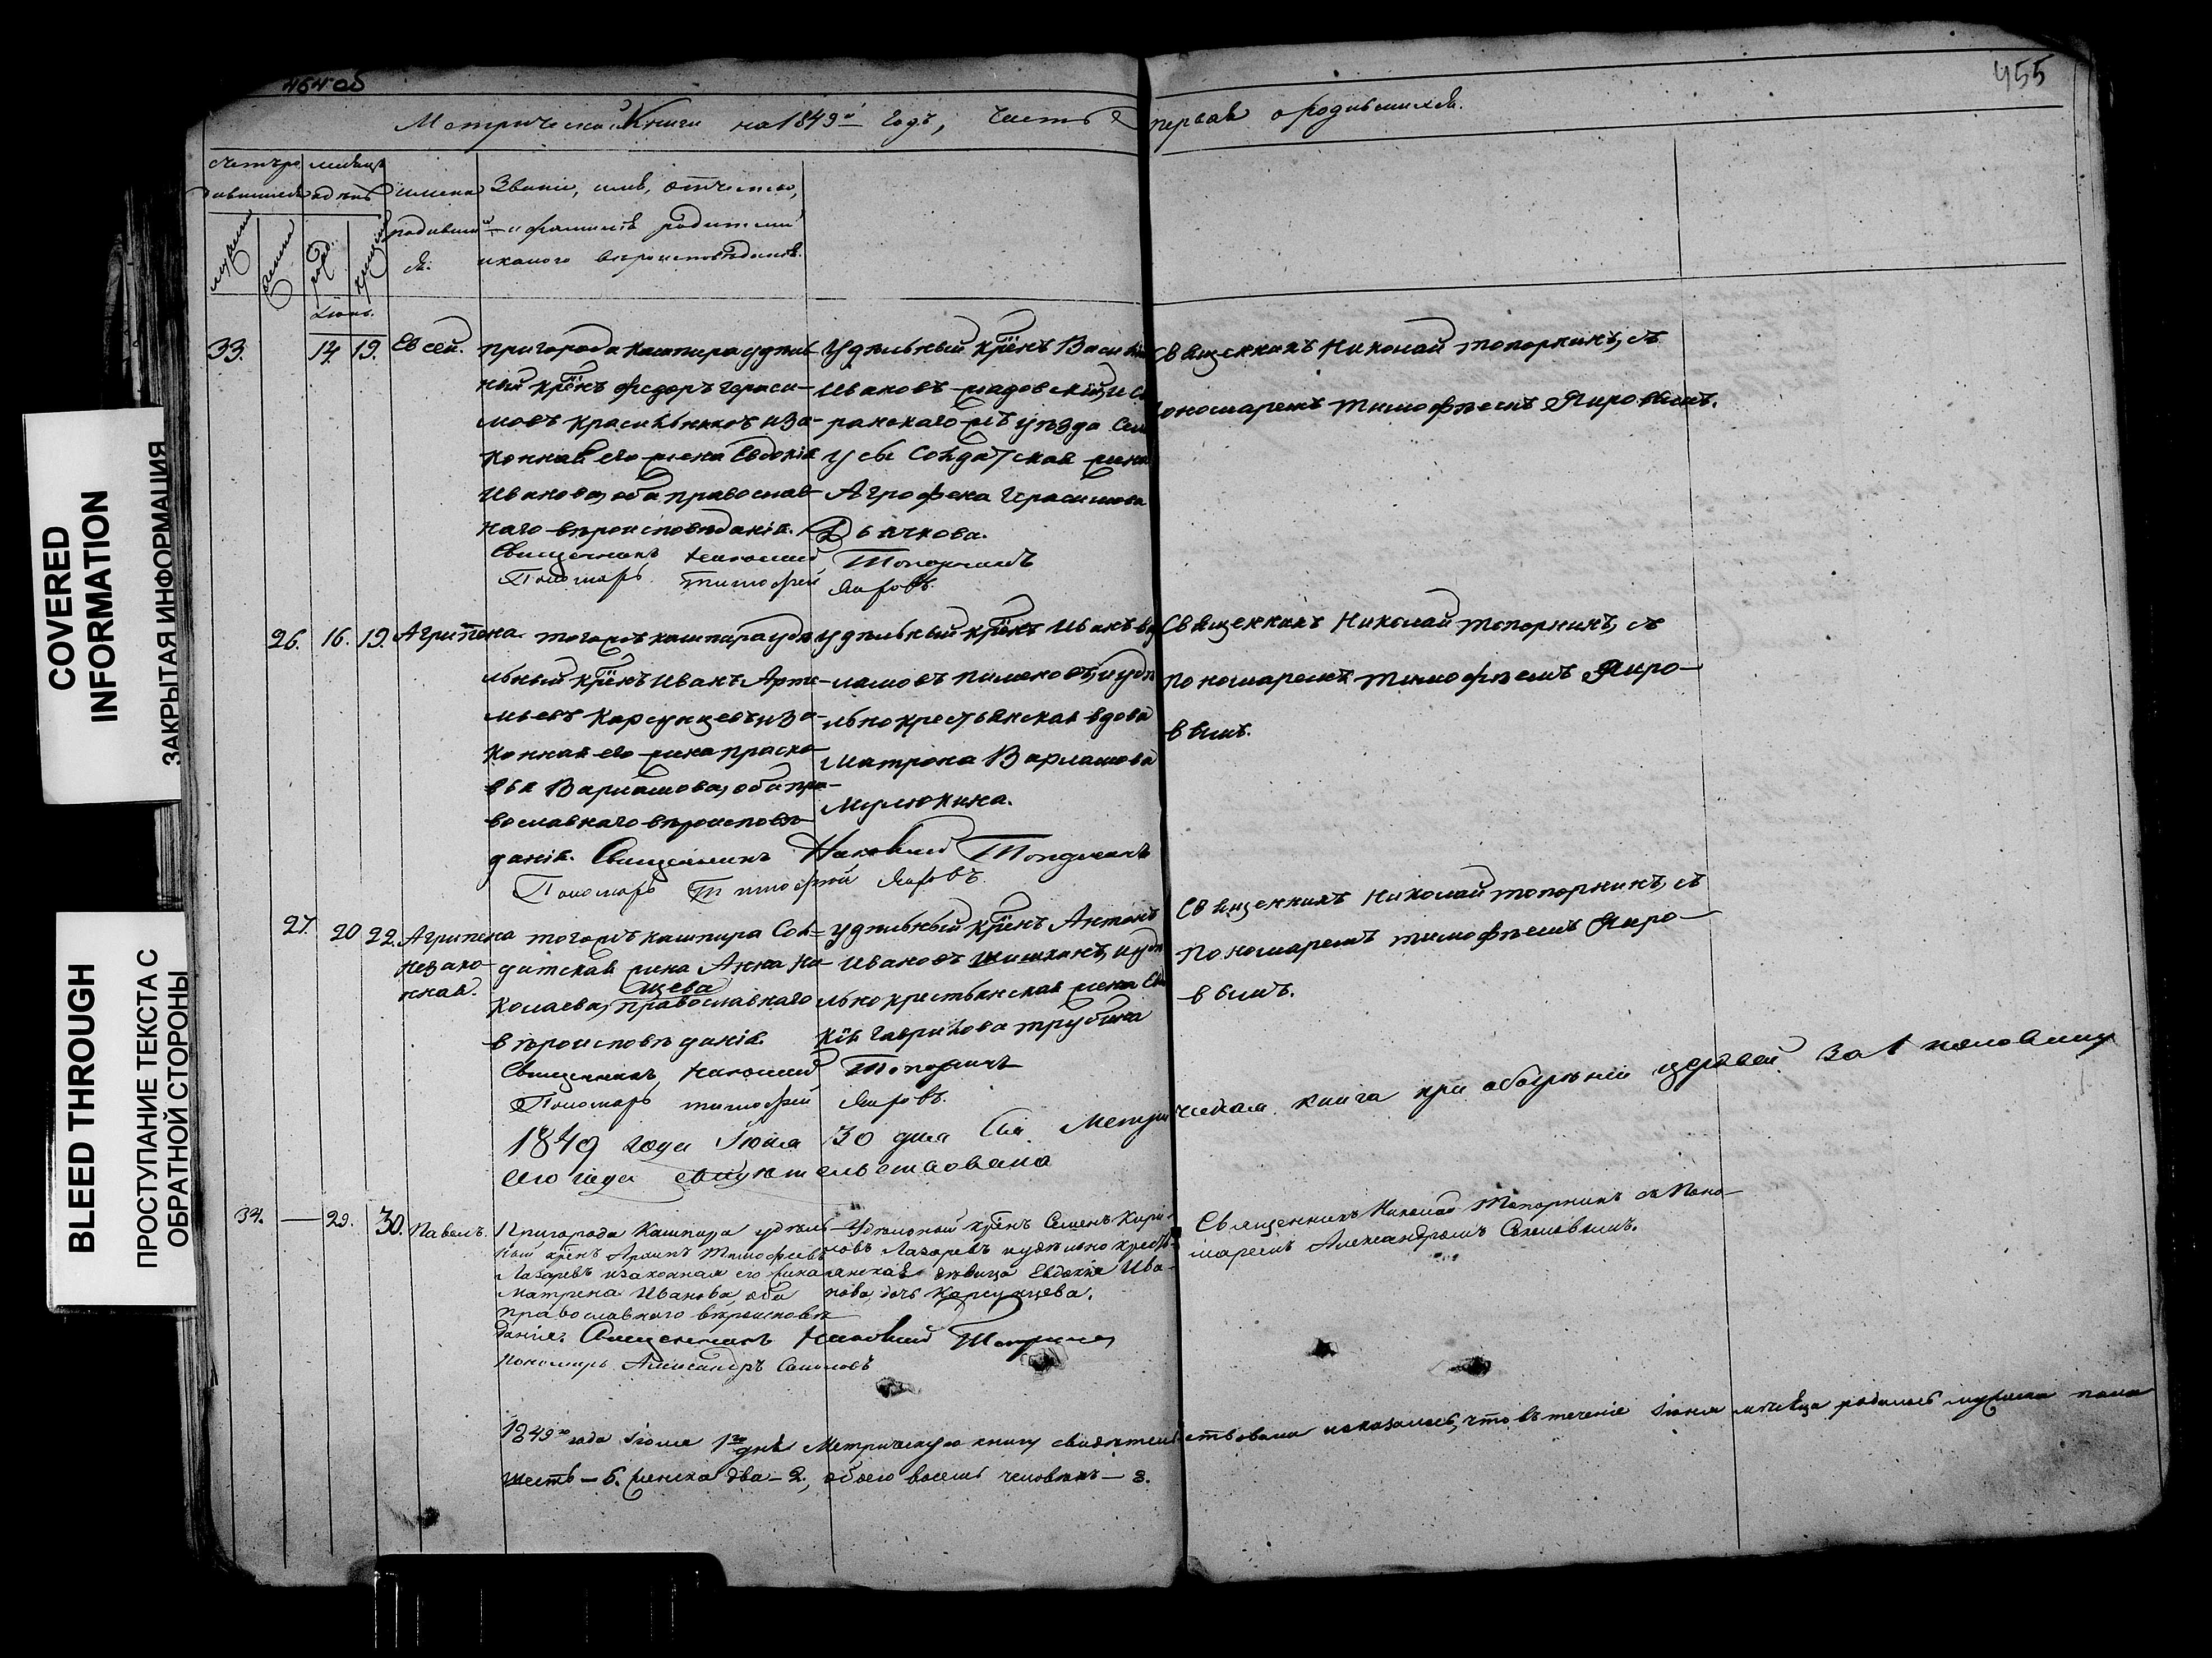 455
Метрической Книги на 1849й Годъ, Часть первая о родившихся.
счетъ ро
дившихся
месяцъ
и день
имена
родивших
ся.
Званiе, имя, отчество,
и фамилiя родителей
и какого вероисповеданiя.
мужеска
женска
рожд.
крещенiя
Iюнь.
33.
14.
19.
Евсей.
пригорода Кашпира удель
ный крѣнъ Федоръ Гераси-
мовъ Красильниковъ и за-
конная его жена Евдокiя
Иванова, оба православ-
наго вѣроисповѣданiя.
Священникъ Николай Топорнинъ
Пономарь Тимофей Яировъ.
Удѣльный крѣнъ Василiй
Ивановъ
уѣзда
Солдатская жена
Агрофена Герасимова
Дьячкова.
Священникъ Николай Топорнинъ, съ
пономаремъ Тимофѣемъ Яировымъ.
26.
16.
19.
Агрипена
тогожъ кашпира удѣ
льный крѣнъ Иванъ Арте-
мьевъ Карсунцевъ и за-
конная его жена праско-
вья Варламова, оба пра-
вославнаго вѣроисповѣ-
данiя. Священникъ Николай Топорнинъ
Пономарь Тимофей Яировъ.
удѣльный крѣнъ Иванъ Вар
ламовъ пименовъ, и удѣ
льно крестьянская вдова
Матрона Варламова
Мулюкина.
Священникъ Николай Топорнинъ, съ
пономаремъ Тимофѣемъ Яиро-
вымъ.
27.
20
22.
Агрипена
незако-
нная.
тогожъ кашпира Сол-
датская жена Анна Ни-
щева
колаева, православнаго
вѣроисповѣданiя.
Священникъ Николай Топорнинъ
Пономарь Тимофей Яировъ.
удѣльный крѣнъ Антонъ
Ивановъ Шишкинъ, и удѣ
льно крестьянская жена
Гаврилова Трубина
Священникъ Николай Топорнинъ, съ
пономаремъ Тимофѣемъ Яиро-
вымъ.
1849 года Iюля 30 дня Сiя Метрическая книга при обозрѣнiи церквей за 1 половину
сего года свидѣтельствована
34.
—
29.
30.
Павелъ.
Пригорода Кашпира удѣль-
ный крѣнъ Архипъ Тимофеевъ
Лазаревъ и законная его жена
Матрена Иванова, оба
православнаго вѣроисповѣ
данiя. Священникъ Николай Топорнинъ
Пономарь Александръ Соколовъ
Удѣльной крѣнъ Семенъ Кири-
ловъ Лазаревъ и удѣльно кресть-
янская дѣвица Евдокiя Ива-
нова, дочь Карсунцева.
Священникъ Николай Топорнинъ съ Поно-
маремъ Александромъ Соколовымъ.
1849го года Iюля 1го дня Метрическую книгу свидѣтельствовали и оказалось, что въ теченiе Iюня мѣсяца родилось мужеска пола
шесть — 6. женска два — 2, обоего восемь человѣкъ — 8.
COVERED
INFORMATION
ЗАКРЫТАЯ ИНФОРМАЦИЯ
BLEED THROUGH
ПРОСТУПАНИЕ ТЕКСТА С
ОБРАТНОЙ СТОРОНЫ